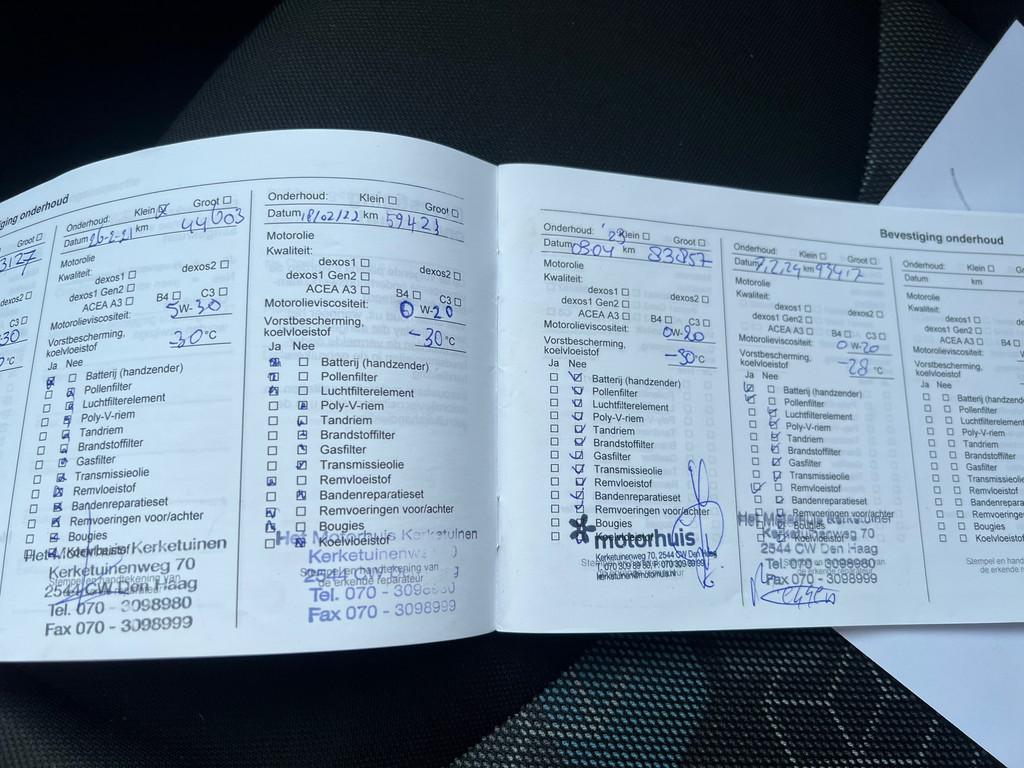 ging onderhoud
3127
dexos2
C3
30
°C
Onderhoud: Klein Groot
Datum 26-2-21 km 44003
Motorolie
Kwaliteit:
dexos1 dexos2
dexos1 Gen2
ACEA A3 B4 C3
Motorolieviscositeit: 5W-30
Vorstbescherming,
koelvloeistof -30°C
Ja Nee
Batterij (handzender)
Pollenfilter
Luchtfilterelement
Poly-V-riem
Tandriem
Brandstoffilter
Gasfilter
Transmissieolie
Remvloeistof
Bandenreparatieset
Remvoeringen voor/achter
Bougies
Koelvloeistof
Het Motorhuis Kerketuinen
Kerketuinenweg 70
Stempel en handtekening van
2544 CW Den Haag
Tel. 070 - 3098980
Fax 070 - 3098999
Onderhoud: Klein Groot
Datum 18/02/22 km 59423
Motorolie
Kwaliteit:
dexos1 dexos2
dexos1 Gen2
ACEA A3 B4 C3
Motorolieviscositeit: 0W-20
Vorstbescherming,
koelvloeistof -30°C
Ja Nee
Batterij (handzender)
Pollenfilter
Luchtfilterelement
Poly-V-riem
Tandriem
Brandstoffilter
Gasfilter
Transmissieolie
Remvloeistof
Bandenreparatieset
Remvoeringen voor/achter
Bougies
Koelvloeistof
Het Motorhuis Kerketuinen
Kerketuinenw
Stempel en handtekening van
de erkende reparateur
Tel. 070 -
Fax 070 - 3098999
Bevestiging onderhoud
Onderhoud: '23 Klein Groot
Datum 0304 km 83857
Motorolie
Kwaliteit:
dexos1 dexos2
dexos1 Gen2
ACEA A3 B4 C3
Motorolieviscositeit: 0W-20
Vorstbescherming,
koelvloeistof -30°C
Ja Nee
Batterij (handzender)
Pollenfilter
Luchtfilterelement
Poly-V-riem
Tandriem
Brandstoffilter
Gasfilter
Transmissieolie
Remvloeistof
Bandenreparatieset
Remvoeringen voor/achter
Bougies
Koelvloeistof
motorhuis
Kerketuinenweg 70, 2544 CW Den Haag
kerketuinen@motorhuis.nl
Onderhoud: Klein Groot
Datum km
Motorolie
Kwaliteit:
dexos1 dexos2
dexos1 Gen2
ACEA A3 B4 C3
Motorolieviscositeit: 0W-20
Vorstbescherming,
koelvloeistof -28°C
Ja Nee
Batterij (handzender)
Pollenfilter
Luchtfilterelement
Poly-V-riem
Tandriem
Brandstoffilter
Gasfilter
Transmissieolie
Remvloeistof
Bandenreparatieset
Remvoeringen voor/achter
Bougies
Koelvloeistof
Het Motorhuis Kerketuinen
Kerketuinenweg 70
2544 CW Den Haag
Tel. 070 - 3098980
Fax 070 - 3098999
Onderhoud: Klein Groot
Datum km
Motorolie
Kwaliteit:
dexos1
dexos1 Gen2
ACEA A3 B4
Motorolieviscositeit:
Vorstbescherming,
koelvloeistof
Ja Nee
Batterij (handzende
Pollenfilter
Luchtfilterelement
Poly-V-riem
Tandriem
Brandstoffilter
Gasfilter
Transmissieolie
Remvloeistof
Bandenreparaties
Remvoeringen vo
Bougies
Koelvloeistof
Stempel en handt
de erkende r